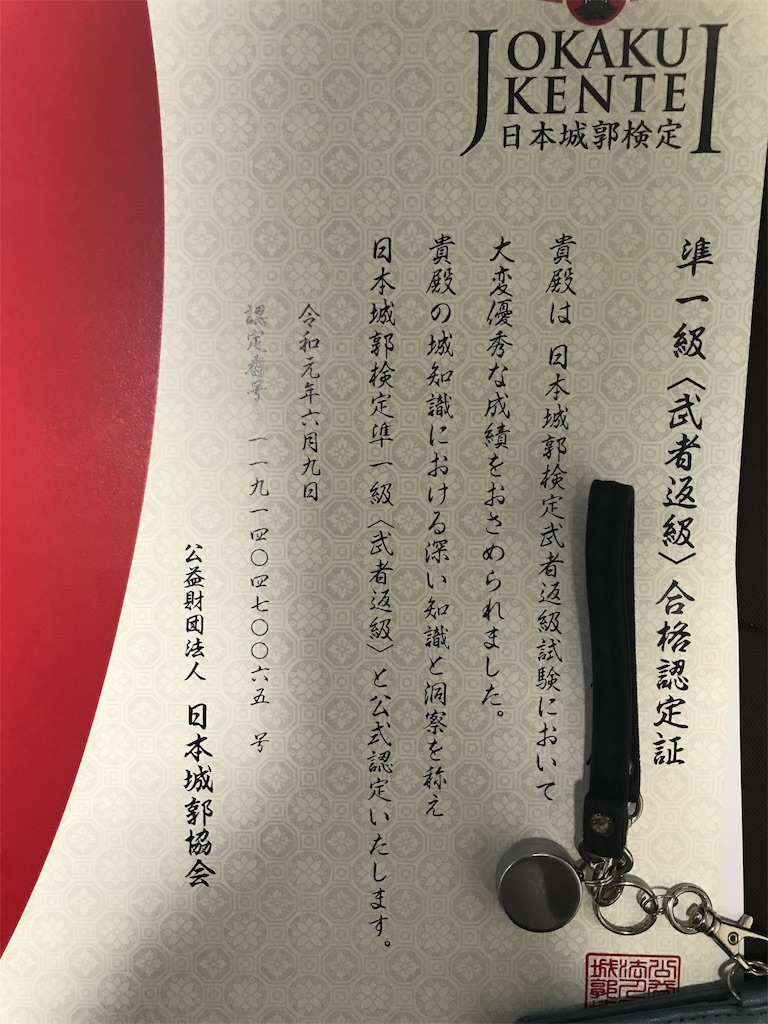 JOKAKU
KENTEI
日本城郭検定
準一級〈武者返級〉合格認定証
貴殿は 日本城郭検定武者返級試験において
大変優秀な成績をおさめられました。
貴殿の城知識における深い知識と洞察を称え
日本城郭検定準一級〈武者返級〉と公式認定いたします。
令和元年六月九日
認定番号 一一九一四〇四七〇〇六五 号
公益財団法人 日本城郭協会